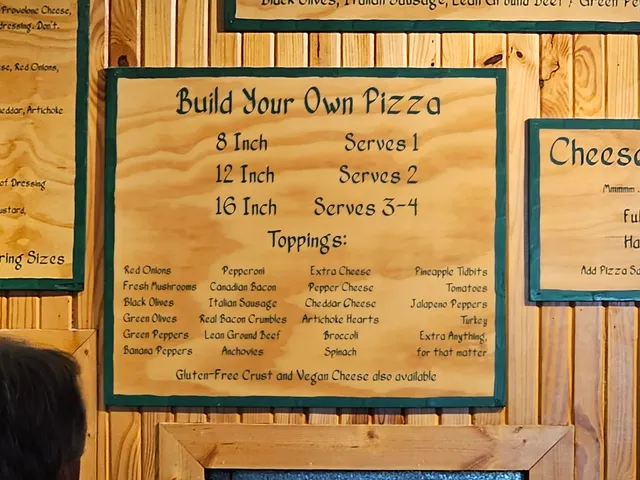 Provolone Cheese,
dressing. Don't
se, Red Onions,
heddar, Artichoke
of Dressing
ustard,
ring Sizes
Black Olives, Italian Sausage, Lean Ground Beef / Green Pe
Build Your Own Pizza
8 Inch Serves 1
12 Inch Serves 2
16 Inch Serves 3-4
Toppings:
Red Onions Pepperoni Extra Cheese Pineapple Tidbits
Fresh Mushrooms Canadian Bacon Pepper Cheese Tomatoes
Black Olives Italian Sausage Cheddar Cheese Jalapeno Peppers
Green Olives Real Bacon Crumbles Artichoke Hearts Turkey
Green Peppers Lean Ground Beef Broccoli Extra Anything,
Banana Peppers Anchovies Spinach for that matter
Gluten-Free Crust and Vegan Cheese also available
Cheese
Mmmmm
Ful
Ha
Add Pizza Sa